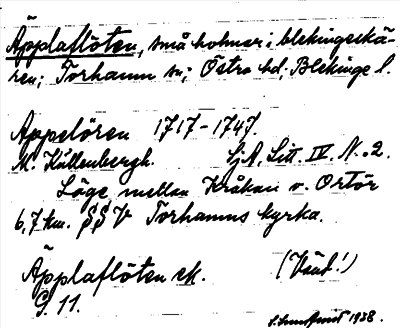 Äpplaflöten, små holmar i blekingeskä-
ren; Torhamn sn; Östra hd. Blekinge l.
Äppelören 1717-1747.
M. Källenbergh. SjA, Litt. IV. N:o 2.
Läge mellan Kråkan o. Ortör
6,7 km. SSV Torhamns kyrka.
Äpplaflöten ek. (Väst!)
G. 11.
1938.